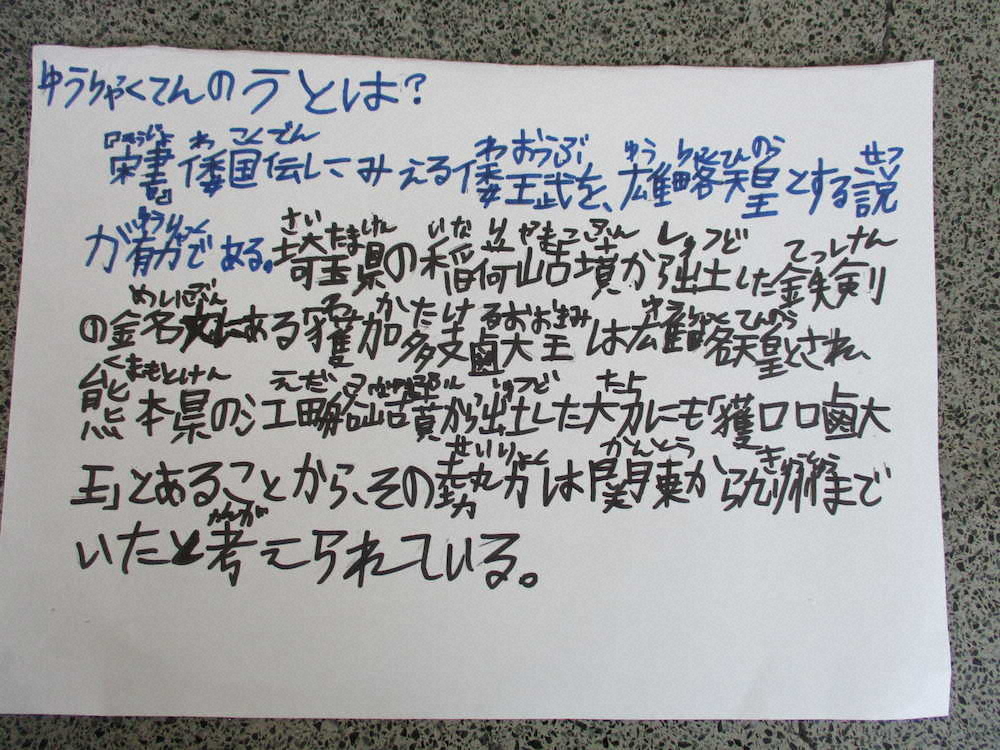 ゆうりゃくてんのうとは?
『宋書』倭国伝にみえる倭王武を、雄略天皇とする説
が有力である。埼玉県の稲荷山古墳から出土した鉄剣
の金名文にある「獲加多支鹵大王は雄略天皇とされ、
熊本県の江田船山古墳から出土した大刀にも「獲口口鹵大
王」とあることから、その勢力は関東から九州まで
いたと考えられている。